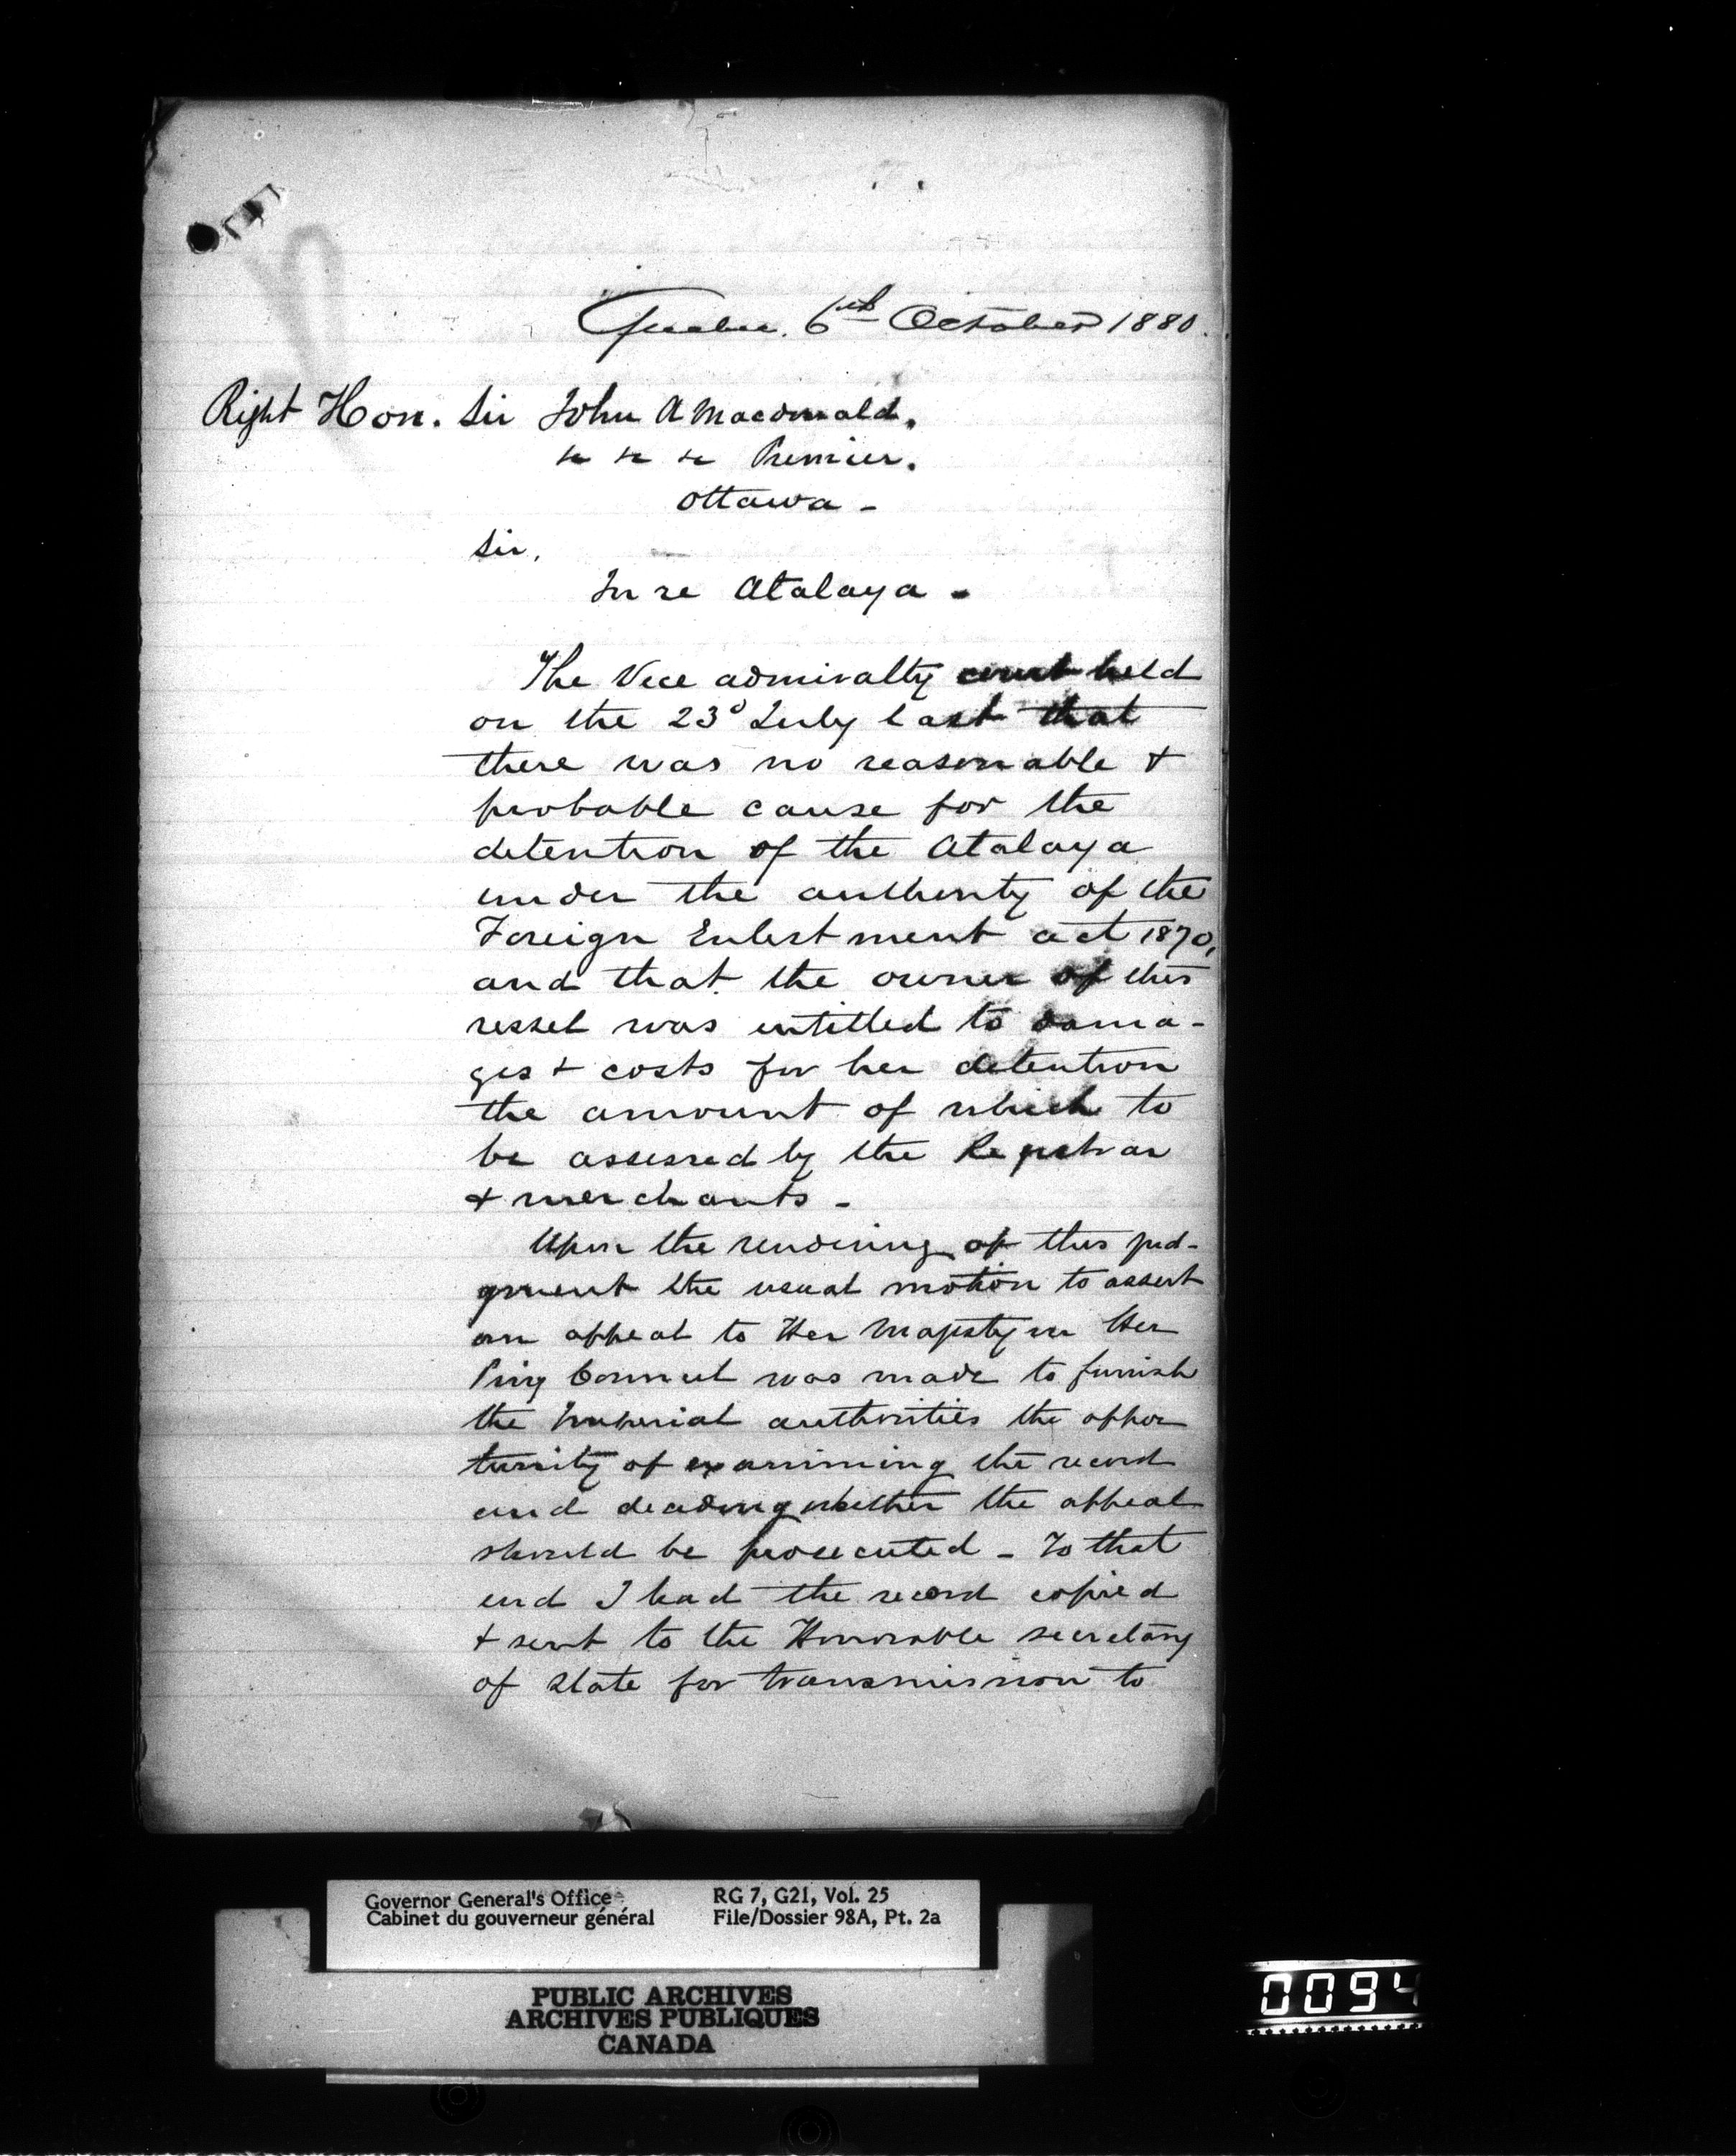 Quebec. 6th October 1880.
Right Hon. Sir John A Macdonald,
&c &c &c Premier.
Ottawa -
Sir,
In re Atalaya -
The Vice admiralty court held
on the 23d July last that
there was no reasonable &
probable cause for the
detention of the Atalaya
under the authority of the
Foreign Enlistment act 1870,
and that the owner of this
vessel was entitled to dama-
ges & costs for her detention
the amount of which to
be assessed by the Registrar
& merchants -
Upon the rendering of this jud-
gment the usual motion to assert
an appeal to Her Majesty in Her
Privy Council was made to furnish
the Imperial authorities the oppor
tunity of examining the record
and deciding whether the appeal
should be prosecuted - To that
end I had the record copied
& sent to the Honorable secretary
of State for transmission to
Governor General's Office
Cabinet du gouverneur général
RG 7, G21, Vol. 25
File/Dossier 98A, Pt. 2a
PUBLIC ARCHIVES
ARCHIVES PUBLIQUES
CANADA
0094